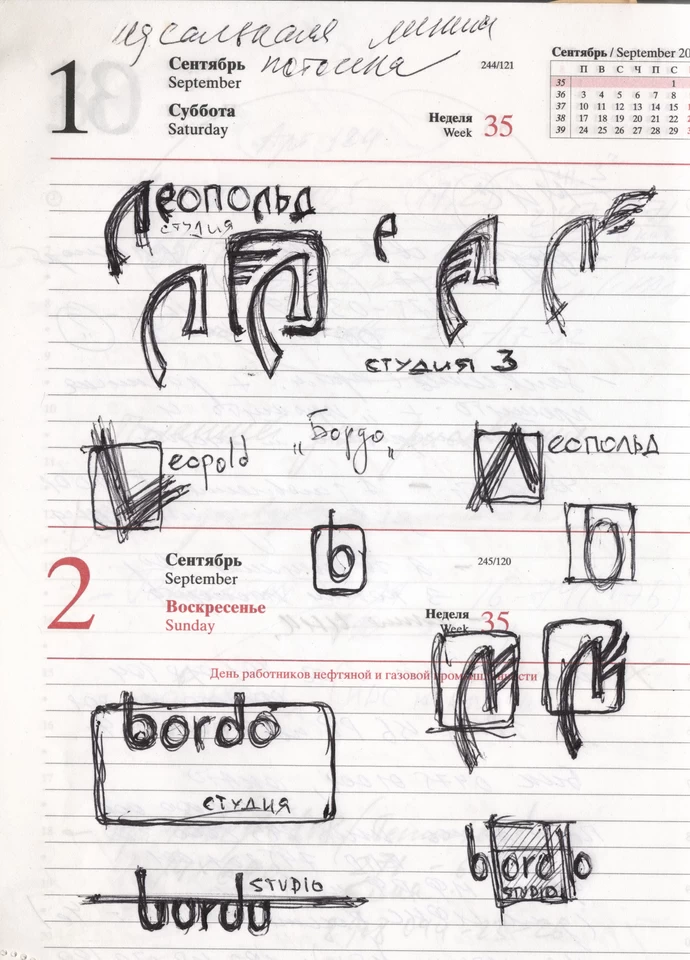 идеальная линия
потолка
1
Сентябрь
September
Суббота
Saturday
244/121
Неделя
Week 35
Сентябрь / September 20
П В С Ч П С
35 1
36 3 4 5 6 7 8
37 10 11 12 13 14 15
38 17 18 19 20 21 22
39 24 25 26 27 28 29
Леопольд
студия
студия 3
Leopold
„Бордо"
Леопольд
b
b
2
Сентябрь
September
Воскресенье
Sunday
245/120
Неделя
Week 35
День работников нефтяной и газовой промышленности
bordo
студия
bordo
STUDIO
STUDIO
bordo